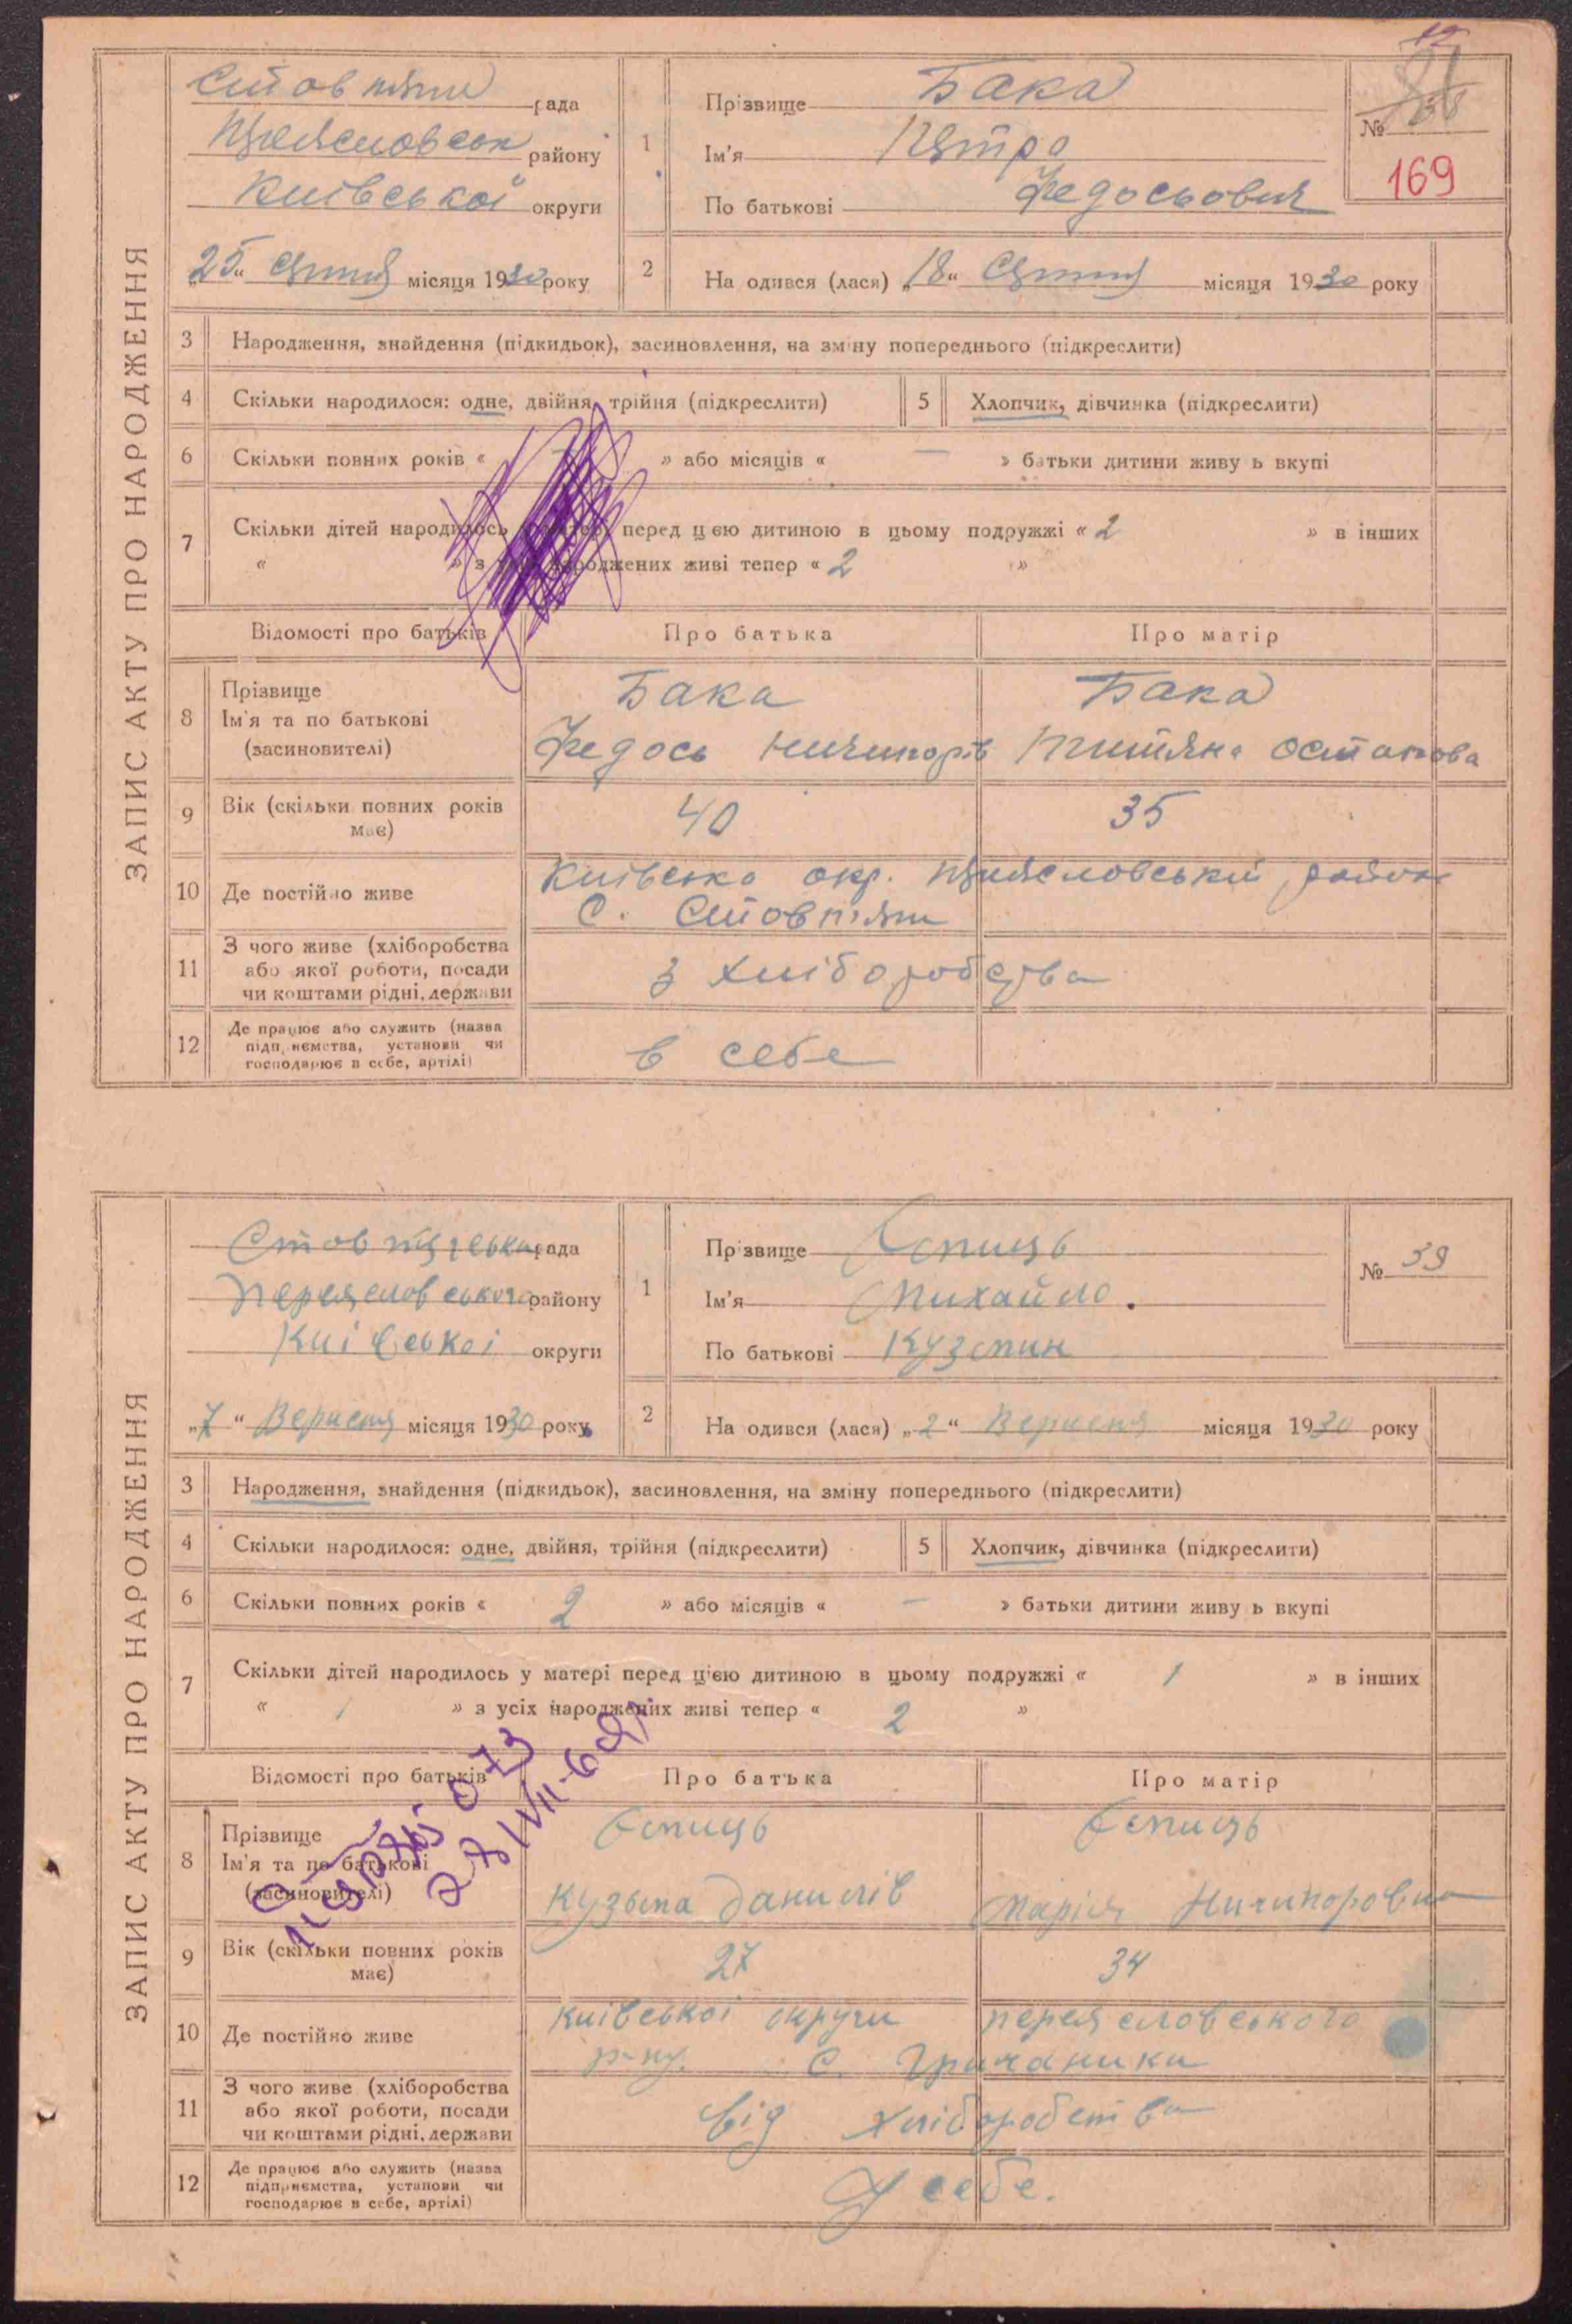 12
ЗАПИС АКТУ ПРО НАРОДЖЕННЯ
Стовпяги рада
району
Київської округи
„25“ місяця 1930 року
1
Прізвище Бака
Ім'я Петро
По батькові Федосьович
№ 38
169
2
На одився (лася) „18“ місяця 1930 року
3 Народження, знайдення (підкидьок), засиновлення, на зміну попереднього (підкреслити)
4 Скільки народилося: одне, двійня, трійня (підкреслити) 5 Хлопчик, дівчинка (підкреслити)
6 Скільки повних років « » або місяців « — » батьки дитини живу ь вкупі
7 Скільки дітей народилось у матері перед цією дитиною в цьому подружжі « 2 » в інших
« » з усіх народжених живі тепер « 2 »
Відомості про батьків Про батька Про матір
8 Прізвище
Ім'я та по батькові
(засиновителі)
Бака Бака
Федось Ничипорів Остапова
9 Вік (скільки повних років
має)
40 35
10 Де постійно живе
Київсько окр. район
С. Стовпяги
11 З чого живе (хліборобства
або якої роботи, посади
чи коштами рідні, держави
З хліборобства
12 Де працює або служить (назва
підприємства, установи чи
господарює в себе, артілі)
в себе
ЗАПИС АКТУ ПРО НАРОДЖЕННЯ
рада
Переясловського району
Київської округи
„7“ Вересня місяця 1930 року
1
Прізвище
Ім'я Михайло.
По батькові Кузьмин
№ 39
2
На одився (лася) „2“ Вересня місяця 1930 року
3 Народження, знайдення (підкидьок), засиновлення, на зміну попереднього (підкреслити)
4 Скільки народилося: одне, двійня, трійня (підкреслити) 5 Хлопчик, дівчинка (підкреслити)
6 Скільки повних років « 2 » або місяців « — » батьки дитини живу ь вкупі
7 Скільки дітей народилось у матері перед цією дитиною в цьому подружжі « 1 » в інших
« 1 » з усіх народжених живі тепер « 2 »
Відомості про батьків Про батька Про матір
8 Прізвище
Ім'я та по батькові
(засиновителі)
Кузьма Данилів Марія Ничипоровна
9 Вік (скільки повних років
має)
27 34
10 Де постійно живе
Київської округи переясловського
р-ну. С. Гречаники
11 З чого живе (хліборобства
або якої роботи, посади
чи коштами рідні, держави
від хліборобства
12 Де працює або служить (назва
підприємства, установи чи
господарює в себе, артілі)
У себе.